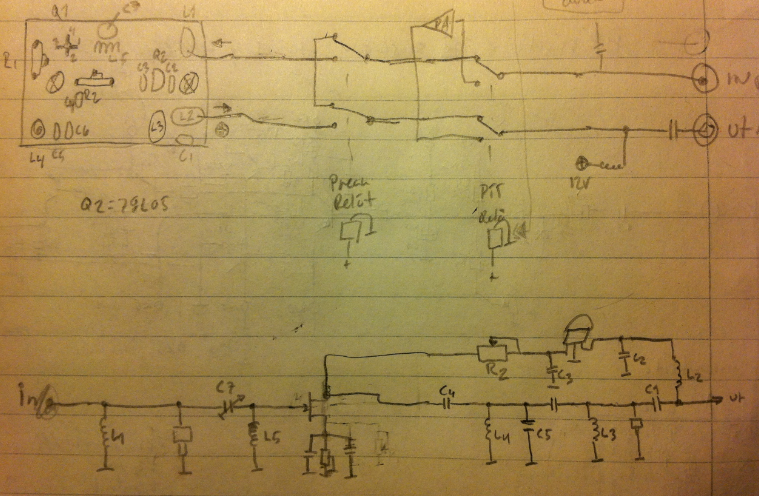 Q1
C7
L1
R1
L5
C3
R2
C2
R2
L2
L3
L4
C5
C6
C1
PA
12V
Q2=78L05
Preamp
Relä
PTT
Relä
+
+
in
L1
C7
L5
R2
C3
C2
L2
C4
L4
C5
L3
C1
ut